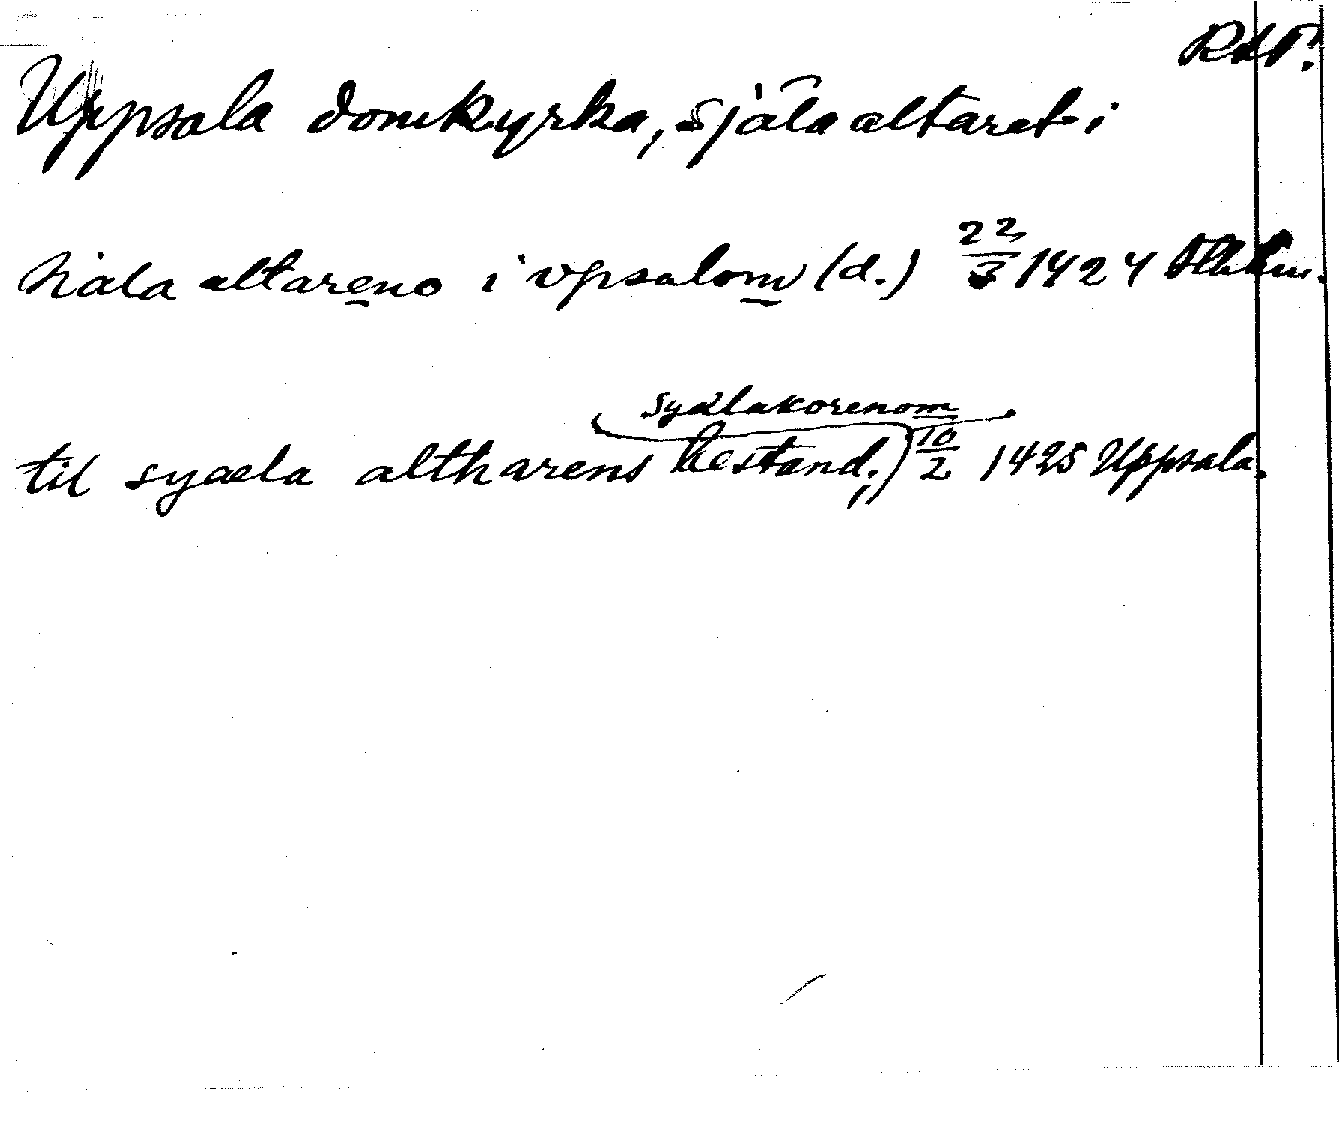 RAP.
Uppsala domkyrka, själaaltaret i
siala altareno i vpsalom (d.) 22/3 1424 Sthlm.
syælakorenom
til syæla altharens bestand.,) 10/2 1425 Uppsala.